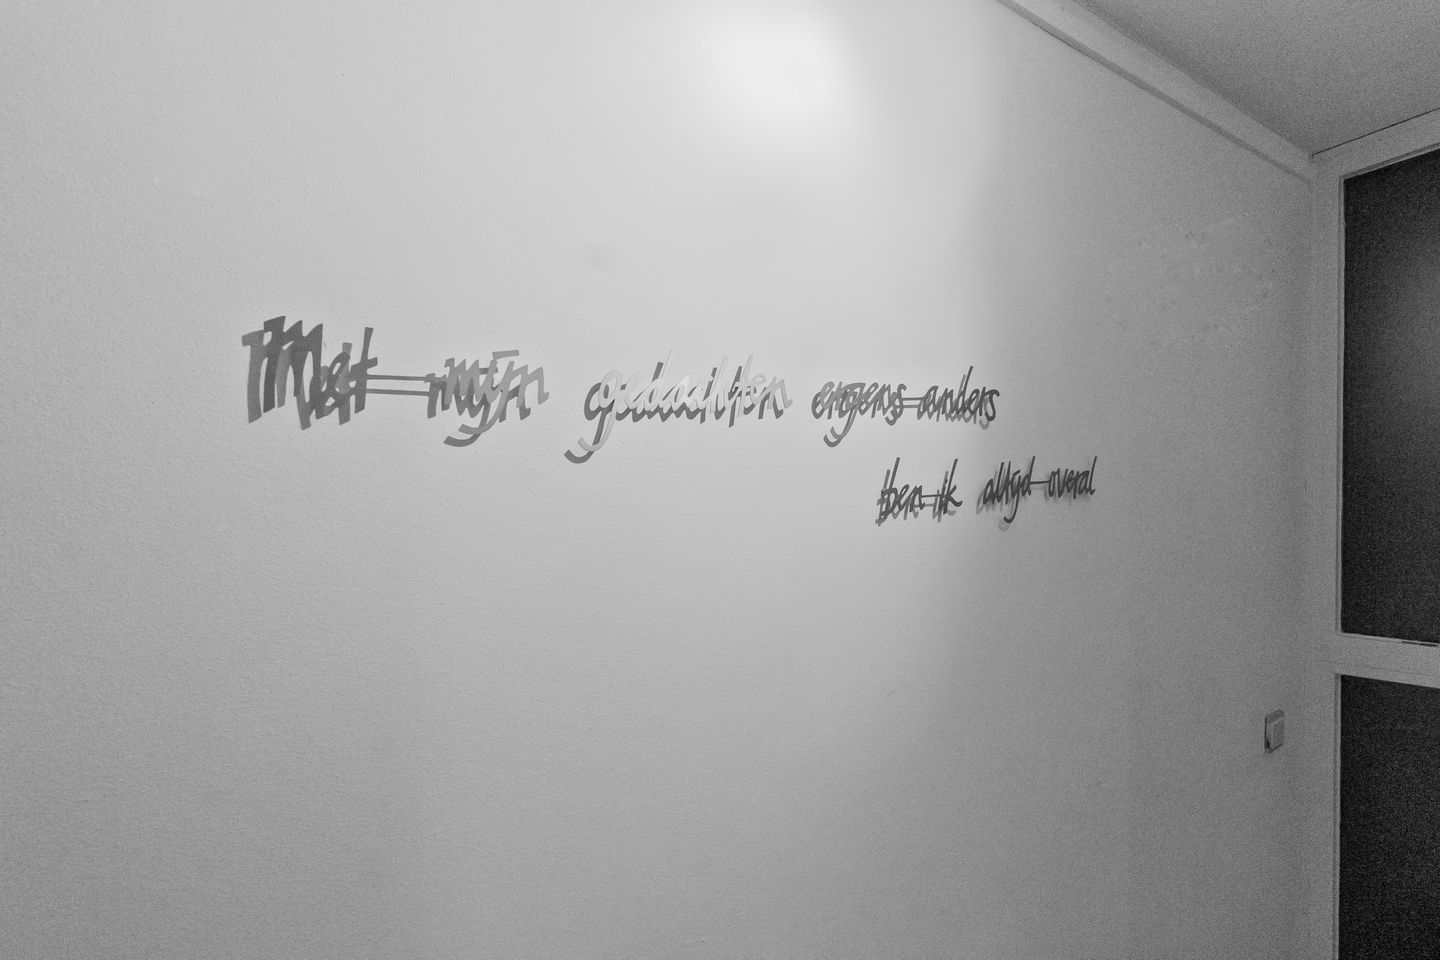 Met mijn gedachten ergens anders
ben ik altijd overal